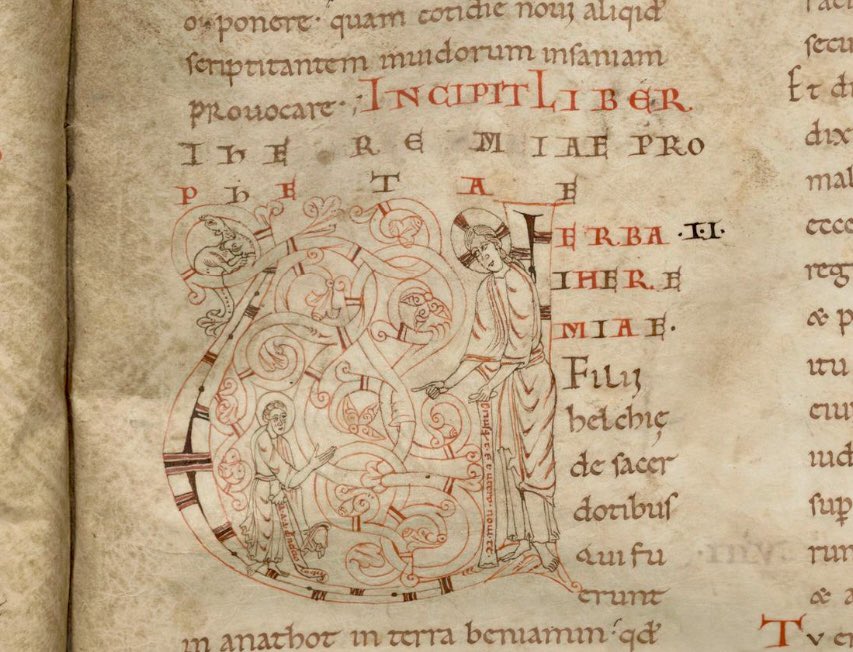 ponere · quam cotidie nouij aliqid
scriptitantem inuidorum insaniam
prouocare · INCIPIT LIBER
IHEREMIAE PRO
PHETAE
VERBA · II ·
IHERE
MIAE ·
Filij
helchię
de sacer
dotibus
qui fu
erunt
in anathot in terra beniamin · qd
secu
Et di
dix
mal
ecce
reg
& p
itu
iud
sup
& a
Tu e